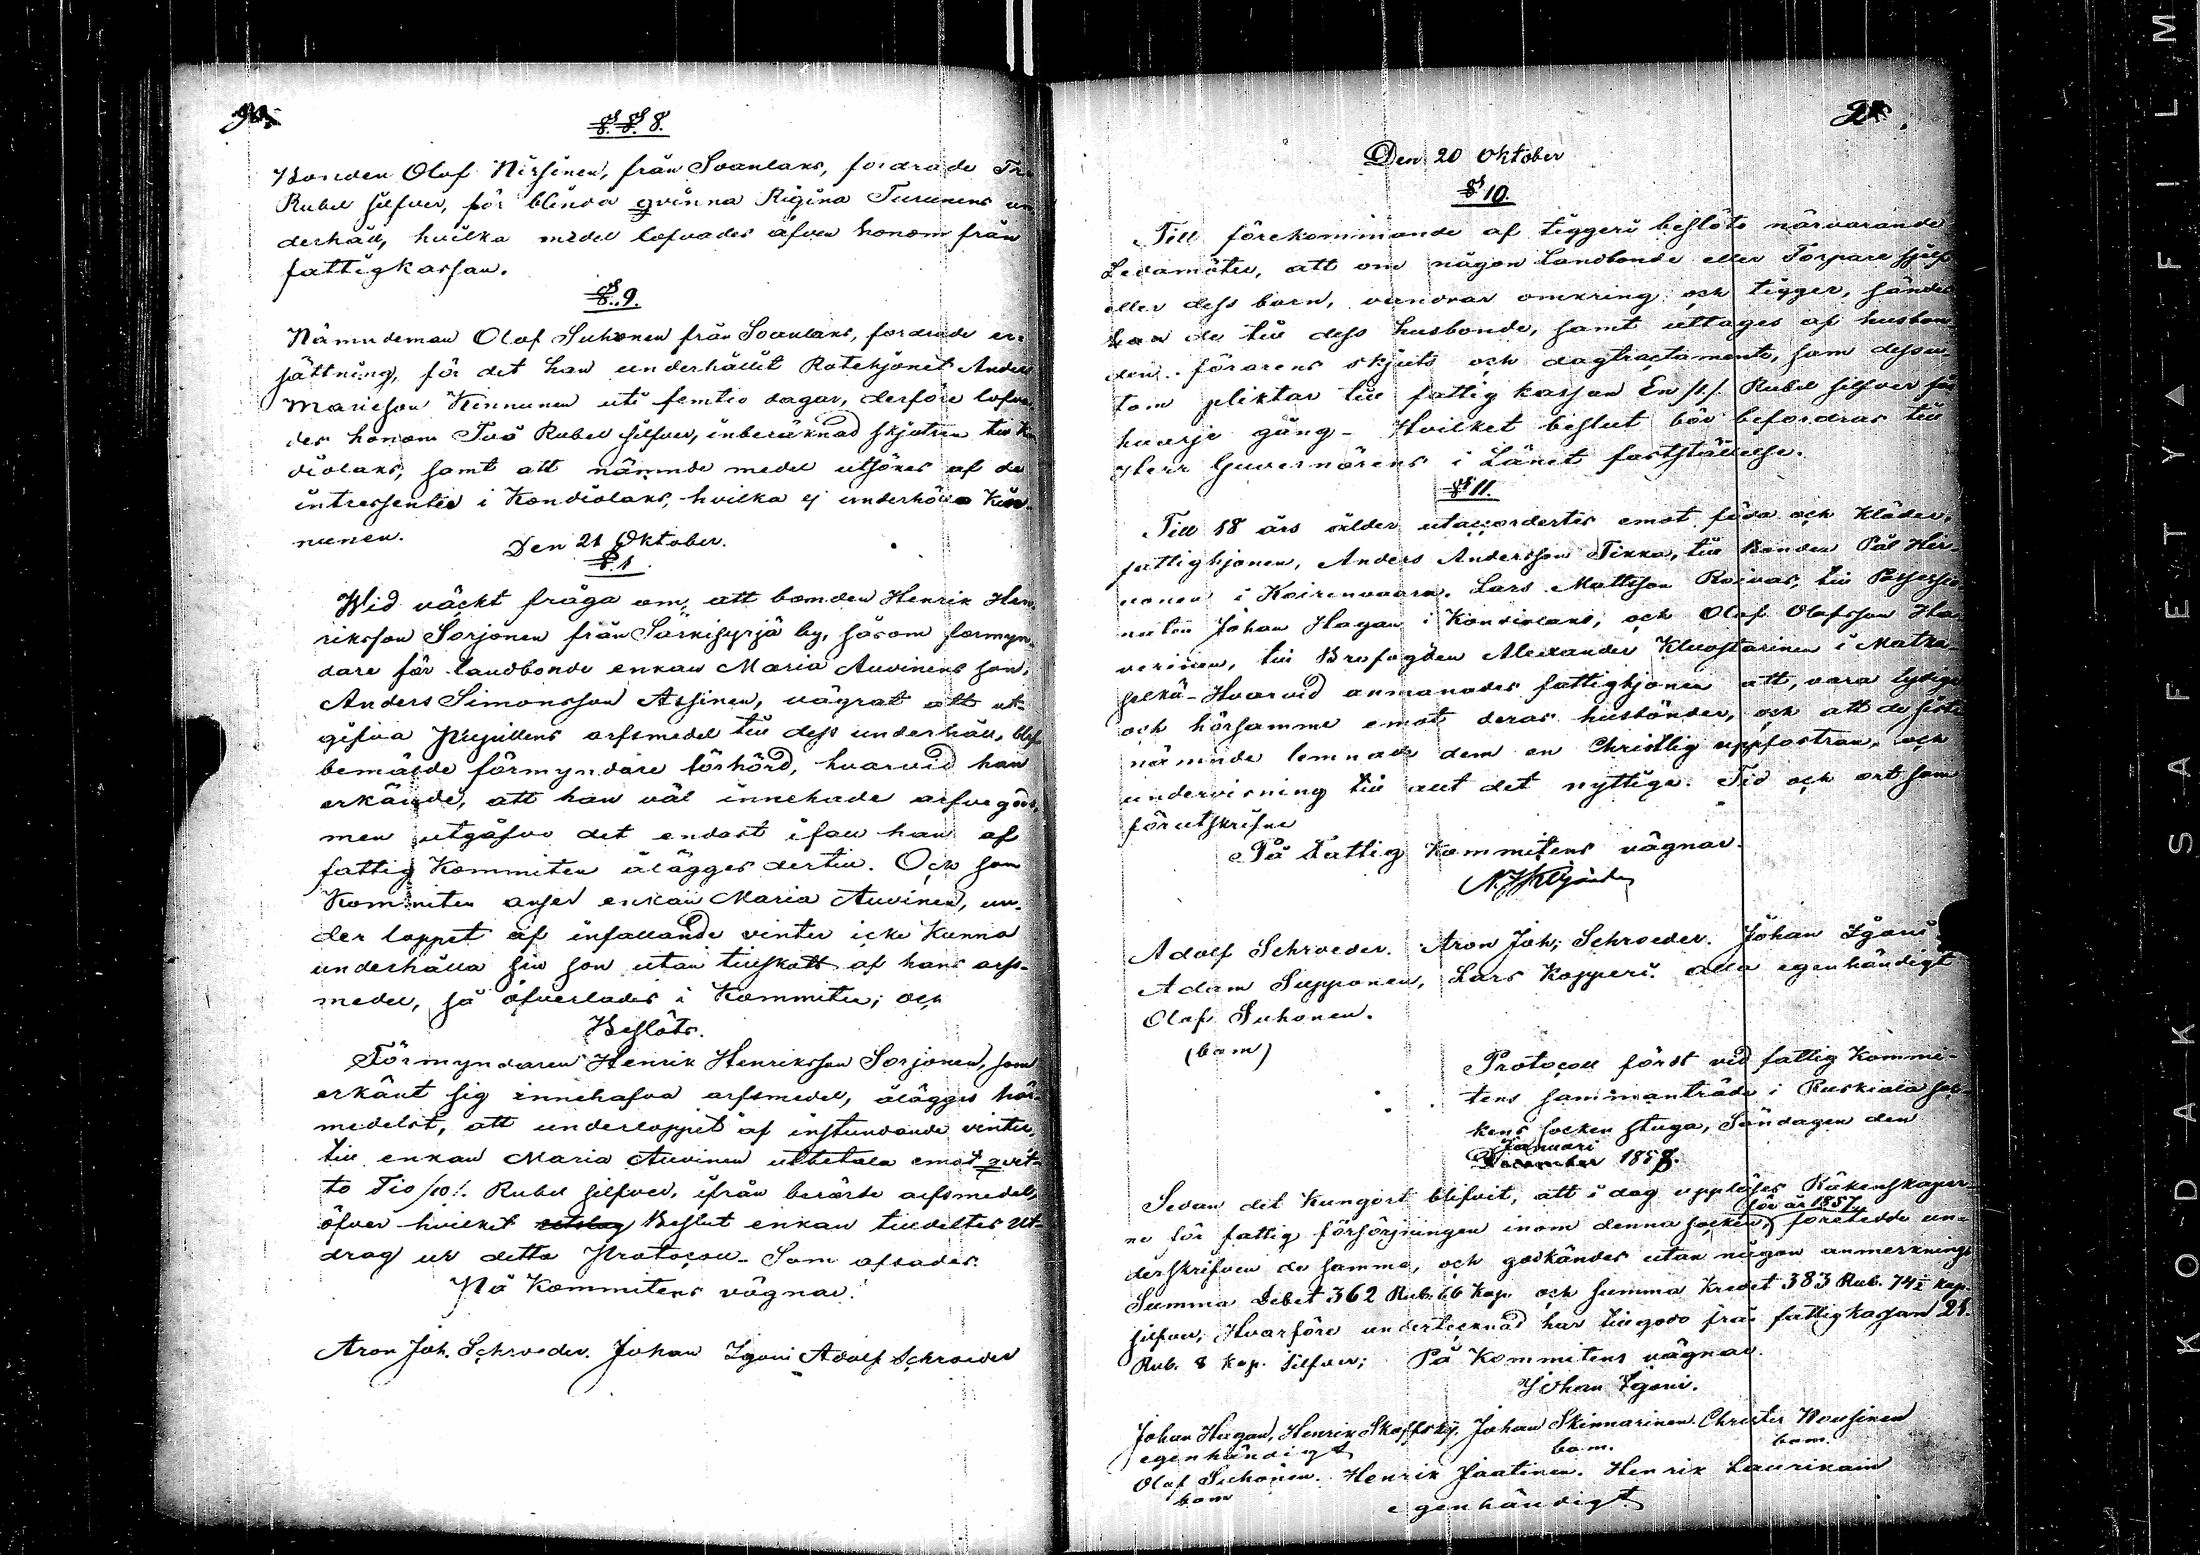 § § 8.
Bonden Olof Nissinen, från Soanlaks, fordrade
Rubel silfver, för blinda qvinna Regina Turunens un-
derhåll, hvilka medel lofvades äfven honom från
fattigkassan.
§. 9.
Nämndeman Olof Suhonen från Soanlaks, fordrade er-
sättning, för det han underhållit Rotehjonet Anders
Mariesson Kinnunen uti femtio dagar, derföre lofva-
des honom Två Rubel silfver, inberäknad skjutsen till Kon
diolaks, samt att nämnde medel utsökes af de
intressenter i Kondiolaks, hvilka ej underhålla Kin-
nunen.
Den 21 Oktober.
§. 1.
Wid väckt fråga om, att bonden Henrik Hen-
riksson Sorjonen från Särkisyrjä by, såsom förmyn-
dare för landbonde enkan Maria Auvinens son,
Anders Simonsson Assinen, vägrat att ut-
gifva Pupillens arfsmedel till dess underhåll, blef
bemälde förmyndare förhörd, hvarvid han
erkände, att han väl innehade arfvegods,
men utgåfve det endast ifall han af
fattig Kommiten ålägges dertill. Och som
Kommiten anser enkan Maria Auvinen, un-
der loppet af infallande vinter icke kunna
underhålla sin son utan tillskott af hans arfs-
medel, så öfverlades i Kommiten; och
Beslöts.
Förmyndaren Henrik Henriksson Sorjonen, som
erkänt sig innehafva arfsmedel, ålägges här-
medelst, att underloppet af instundande vinter,
till enkan Maria Auvinen utbetala emot qvit-
to Tio /10/. Rubel silfver, ifrån berörde arfsmedel,
öfver hvilket utslag Beslut enkan tilldeltes Ut-
drag ur detta Protocoll. Som afsades.
På Kommitens vägnar.
Aron Joh. Schroeder. Johan Igoni Adolf Schroeder
Den 20 Oktober
§ 10.
Till förekommande af tiggeri beslöto närvarande
Ledamöter, att om någon Landbonde eller Torpare sjelf
eller dess barn, vandrar omkring och tigger, händes
han de till dess husbonde, samt uttages af husbon-
den förarens skjuts och dagtractamente, som dessu-
tom pliktar till fattig kassan En /1/. Rubel silfver för
hvarje gång - Hvilket beslut bör befordras till
Herr Guvernörens i Länet fastställelse.
§ 11.
Till 18 års ålder utaccordertes emot föda och kläder,
fattighjonen, Anders Andersson Tikka, till Bonden Pål Hir-
nonen i Koirinvaara. Lars Mattsson Roivas, till Possessio-
naten Johan Hagan i Kondiolaks; och Olof Olofsson Ha-
verinen, till Brofogden Alexander Kluostarinen i Matka-
selkä - Hvarvid anmanades fattighjonen att, vara lydige
och hörsamme emot deras husbönder, och att de sist-
nämnde lemnade dem en Christlig uppfostran, och
undervisning till allt det nyttiga. Tid och ort som
förutskrifne
På Fattig Kommitens vägnar.
Adolf Schroeder. Aron Joh; Schroeder. Johan Igoni
Adam Supponen, Lars Kopperi. alla egenhändigt
Olof Suhonen.
(bom)
Protocoll fördt vid fattig Kommi-
tens sammanträde i Ruskiala soc-
kens sockenstuga, Söndagen den
Januari
December 1858.
Sedan det kungjort blifvit, att i dag uppläses Räkenskaper-
för år 1857
ne för fattig försörjningen inom denna socken, företedde un-
derskrifven de samma, och godkändes utan någon anmerkning
Summa Debet 362 Rub. 66 Kop. och summa Kredit 383 Rub. 74½ kop.
silfver, Hvarföre undertecknad har tillgodo från fattigkassan 21.
Rub. 8 kop. silfver; På Kommitens vägnar.
Johan Igoni.
Johan Hagan, Henrik Skoffsky. Johan Skinnarinen. Christer Nousinen
egenhändigt bom. bom.
Olof Suhonen. Henrik Jaatinen. Henrik Laurikain
bom egenhändigt
KODAK SAFETY FILM